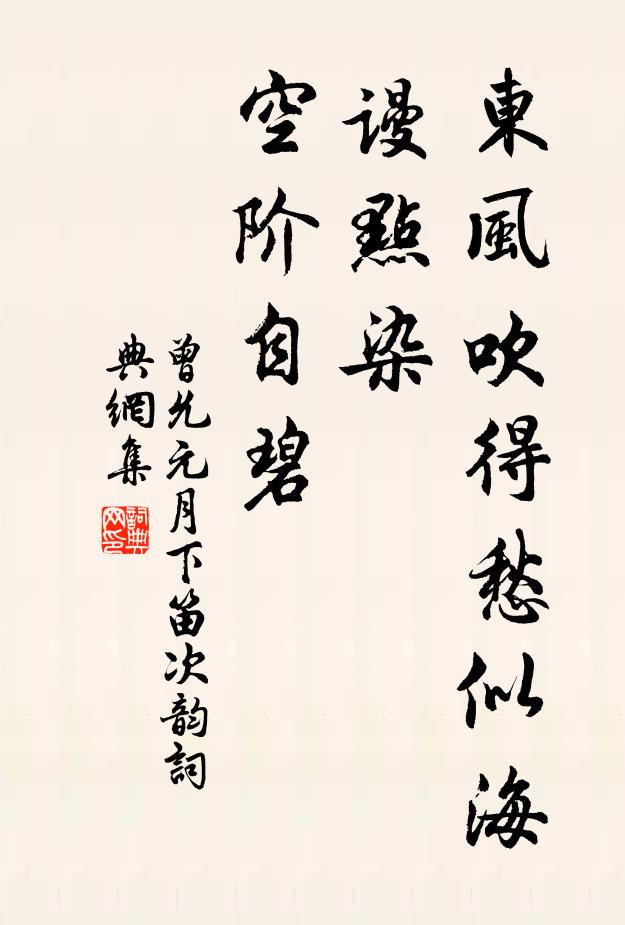 東風吹得愁似海
謾點染
空阶自碧
曾允元月下笛次韵詞
典網集
詞典
网印